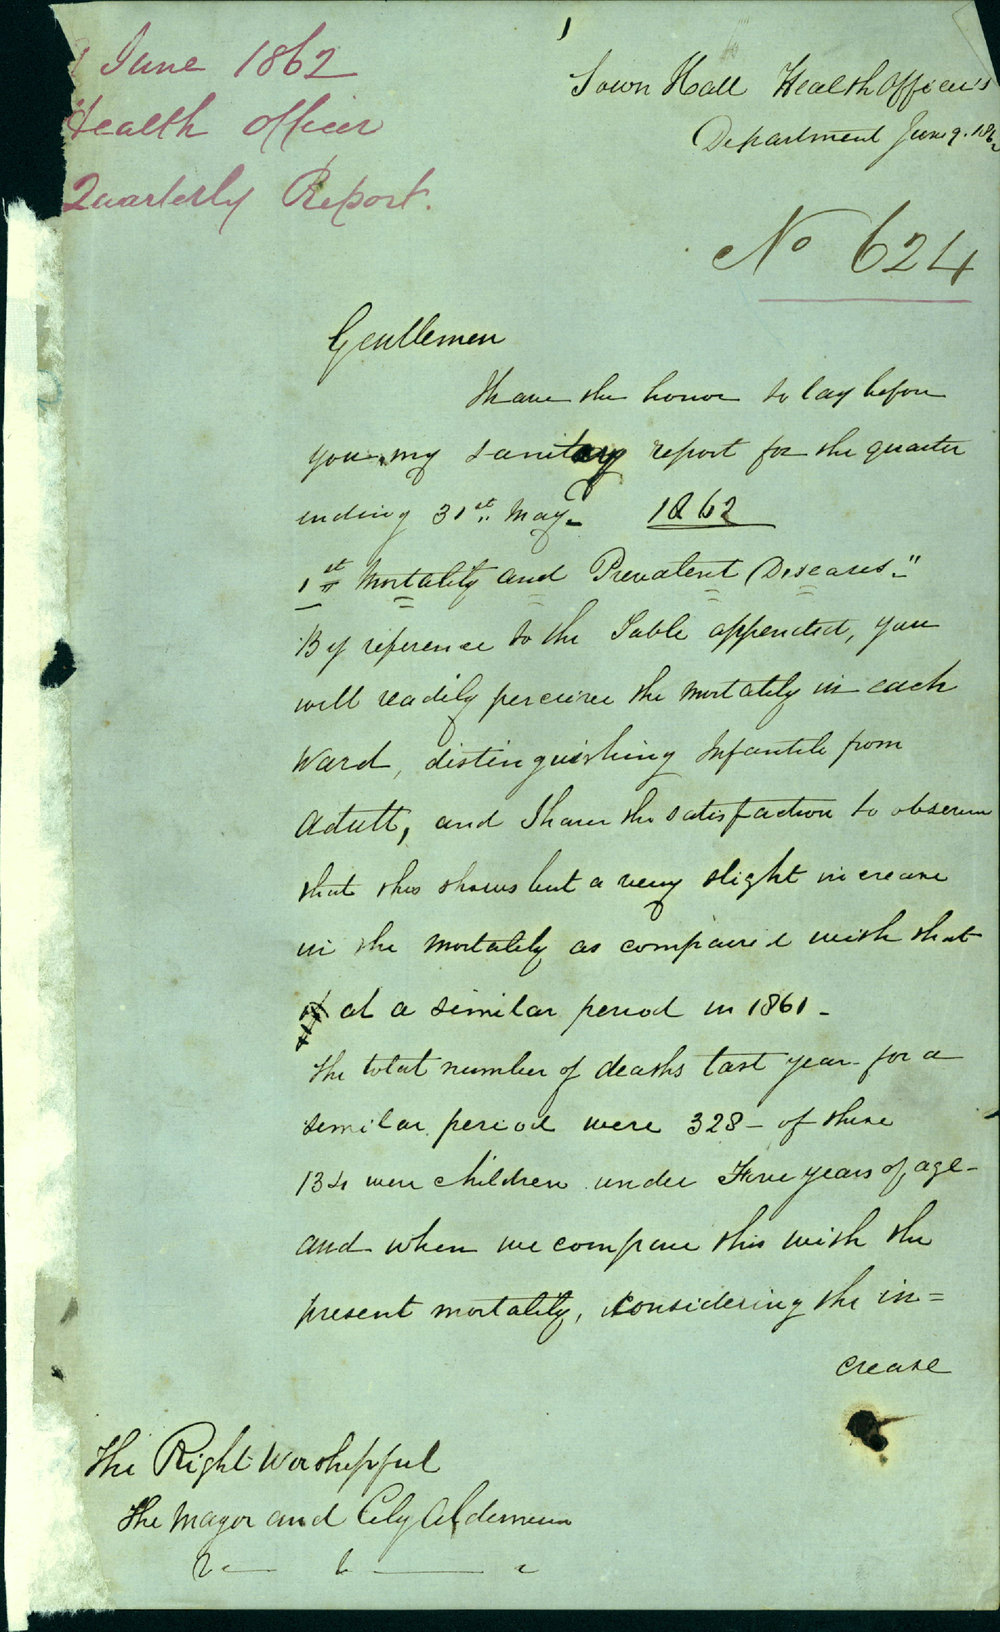 1
9 June 1862
Health Officer
Quarterly Report.
Town Hall Health Officer's
Department June 9. 1862
No 624
Gentlemen
I have the honor to lay before
you my sanitary report for the quarter
ending 31st May 1862
1st Mortality and Prevalent Diseases"
By reference to the Table appended, you
will readily perceive the mortality in each
Ward, distinguishing Infantile from
Adult, and I have the satisfaction to observe
that this shows but a very slight increase
in the mortality as compaired with that
at a similar period in 1861 -
The total number of deaths last year for a
similar period were 328 - of these
134 were children under Five years of age -
and when we compare this with the
present mortality, considering the in=
crease
The Right Worshippful
The Mayor and City Aldermen